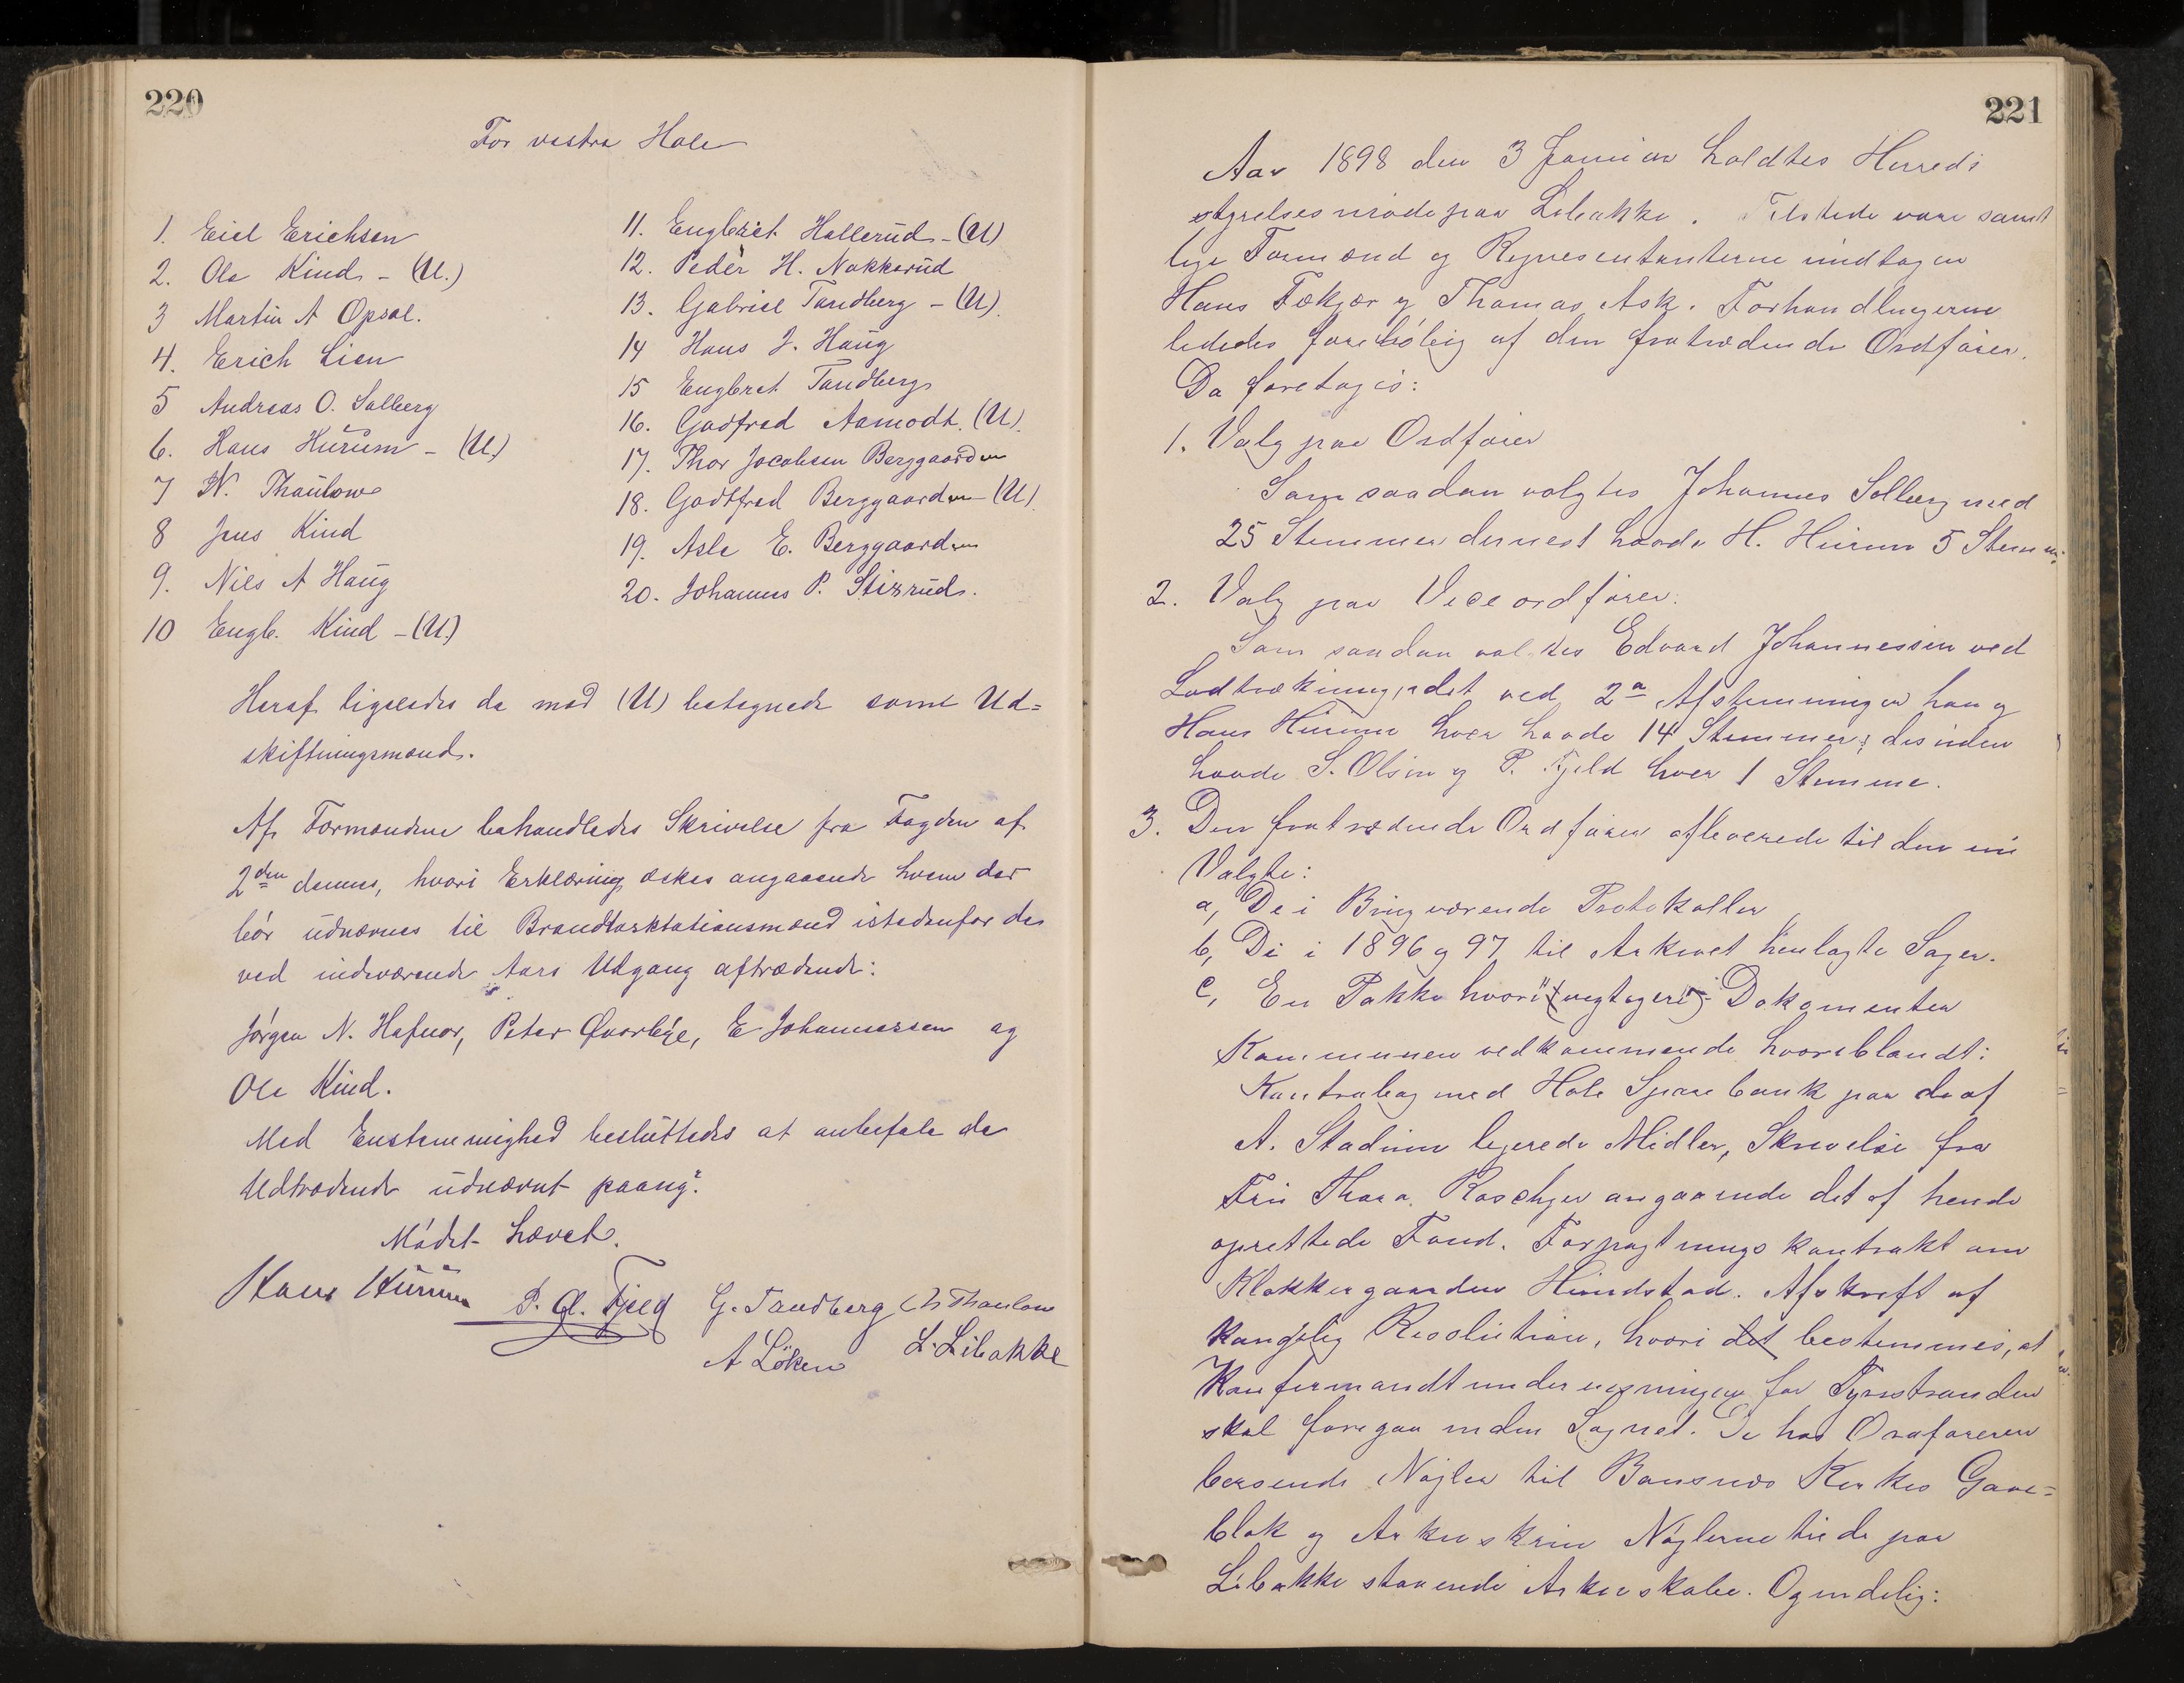 220
For vestre Hole
1. Eiel Erichsen
2. Ole Kind - (U.)
3 Martin A Opsal.
4. Erich Lien
5 Andreas O. Solberg
6. Hans Hurum - (U.)
7 N. Thaulow
8 Jens Kind
9. Nils A Haug
10 Engb. Kind - (U.)
11. Engbret Hallerud - (U)
12. Peder H. Nakkerud
13. Gabriel Tandberg - (U).
14 Hans J. Haug
15 Engbret Tandberg
16. Godfred Aamodt. (U).
17. Thor Jacobsen Berggaarden
18. Godtfred Berggaarden (U).
19. Asle E. Berggaarden
20. Johannes P. Stixrud.
Heraf ligeledes de med (U) betegnede som Ud=
skiftningsmænd.
Af Formændene behandledes Skrivelse fra Fogden af
2den dennes, hvori Erklæring æskes angaaende hvem der
bör udnævnes til Brandtakstationsmænd istedenfor de
ved indeværende Aars Udgang aftrædende:
Jörgen N. Hafnor, Peter Överbye, E Johannessen og
Ole Kind.
Med Enstemmighed besluttedes at anbefale de
Udtrædende udnævnt paany.
Mödet hævet.
Hans Hurum P. O. Fjeld G. Tandberg N Thaulow
A Löken L. Libakke
221
Aar 1898 den 3 Januar holdtes Herreds
styrelsesmöde paa Libakke. Tilstede vare samt
lige Formænd og Representanterne undtagen
Hans Fekjær og Thomas Ask. Forhandlingerne
lededes forelöbig af den fratrædende Ordförer.
Da foretoges:
1. Valg paa Ordförer
Som saadan valgtes Johannes Solberg med
25 Stemmer dernest havde H. Hurum 5 Stemmer.
2. Valg paa Viceordförer.
Som saadan valgtes Edvard Johannessen ved
Lodtrækning, idet ved 2den Afstemningen han og
Hans Hurum hver havde 14 Stemmer; desuden
havde S. Olsen og P. Fjeld hver 1 Stemme.
3. Den fratrædende Ordförer afleverede til den nu
Valgte:
a, De i Brug værende Protokoller
b, De i 1896 og 97 til Arkivet henlagte Sager.
c, En Pakke hvori (vigtigere) Dokumenter
Kommunen vedkommende hvoriblandt:
Kontrabog med Hole Sparebank paa de af
A. Stadum legerede Midler, Skrivelse fra
Fru Thora Roscher angaaende det af hende
oprettede Fond. Forpagtningskontrakt om
Klokkergaarden Hundstad. Afskrift af
kongelig Resolution, hvori det bestemmes, at
Konfirmandtundervisningen for Tyristranden
skal foregaa inden Sognet. De hos Ordföreren
beroende Nögler til Bønsnes Kirkes Gave=
blok og Arkivskrin Nöglerne til de paa
Libakke staaende Arkivskabe. Og endelig: